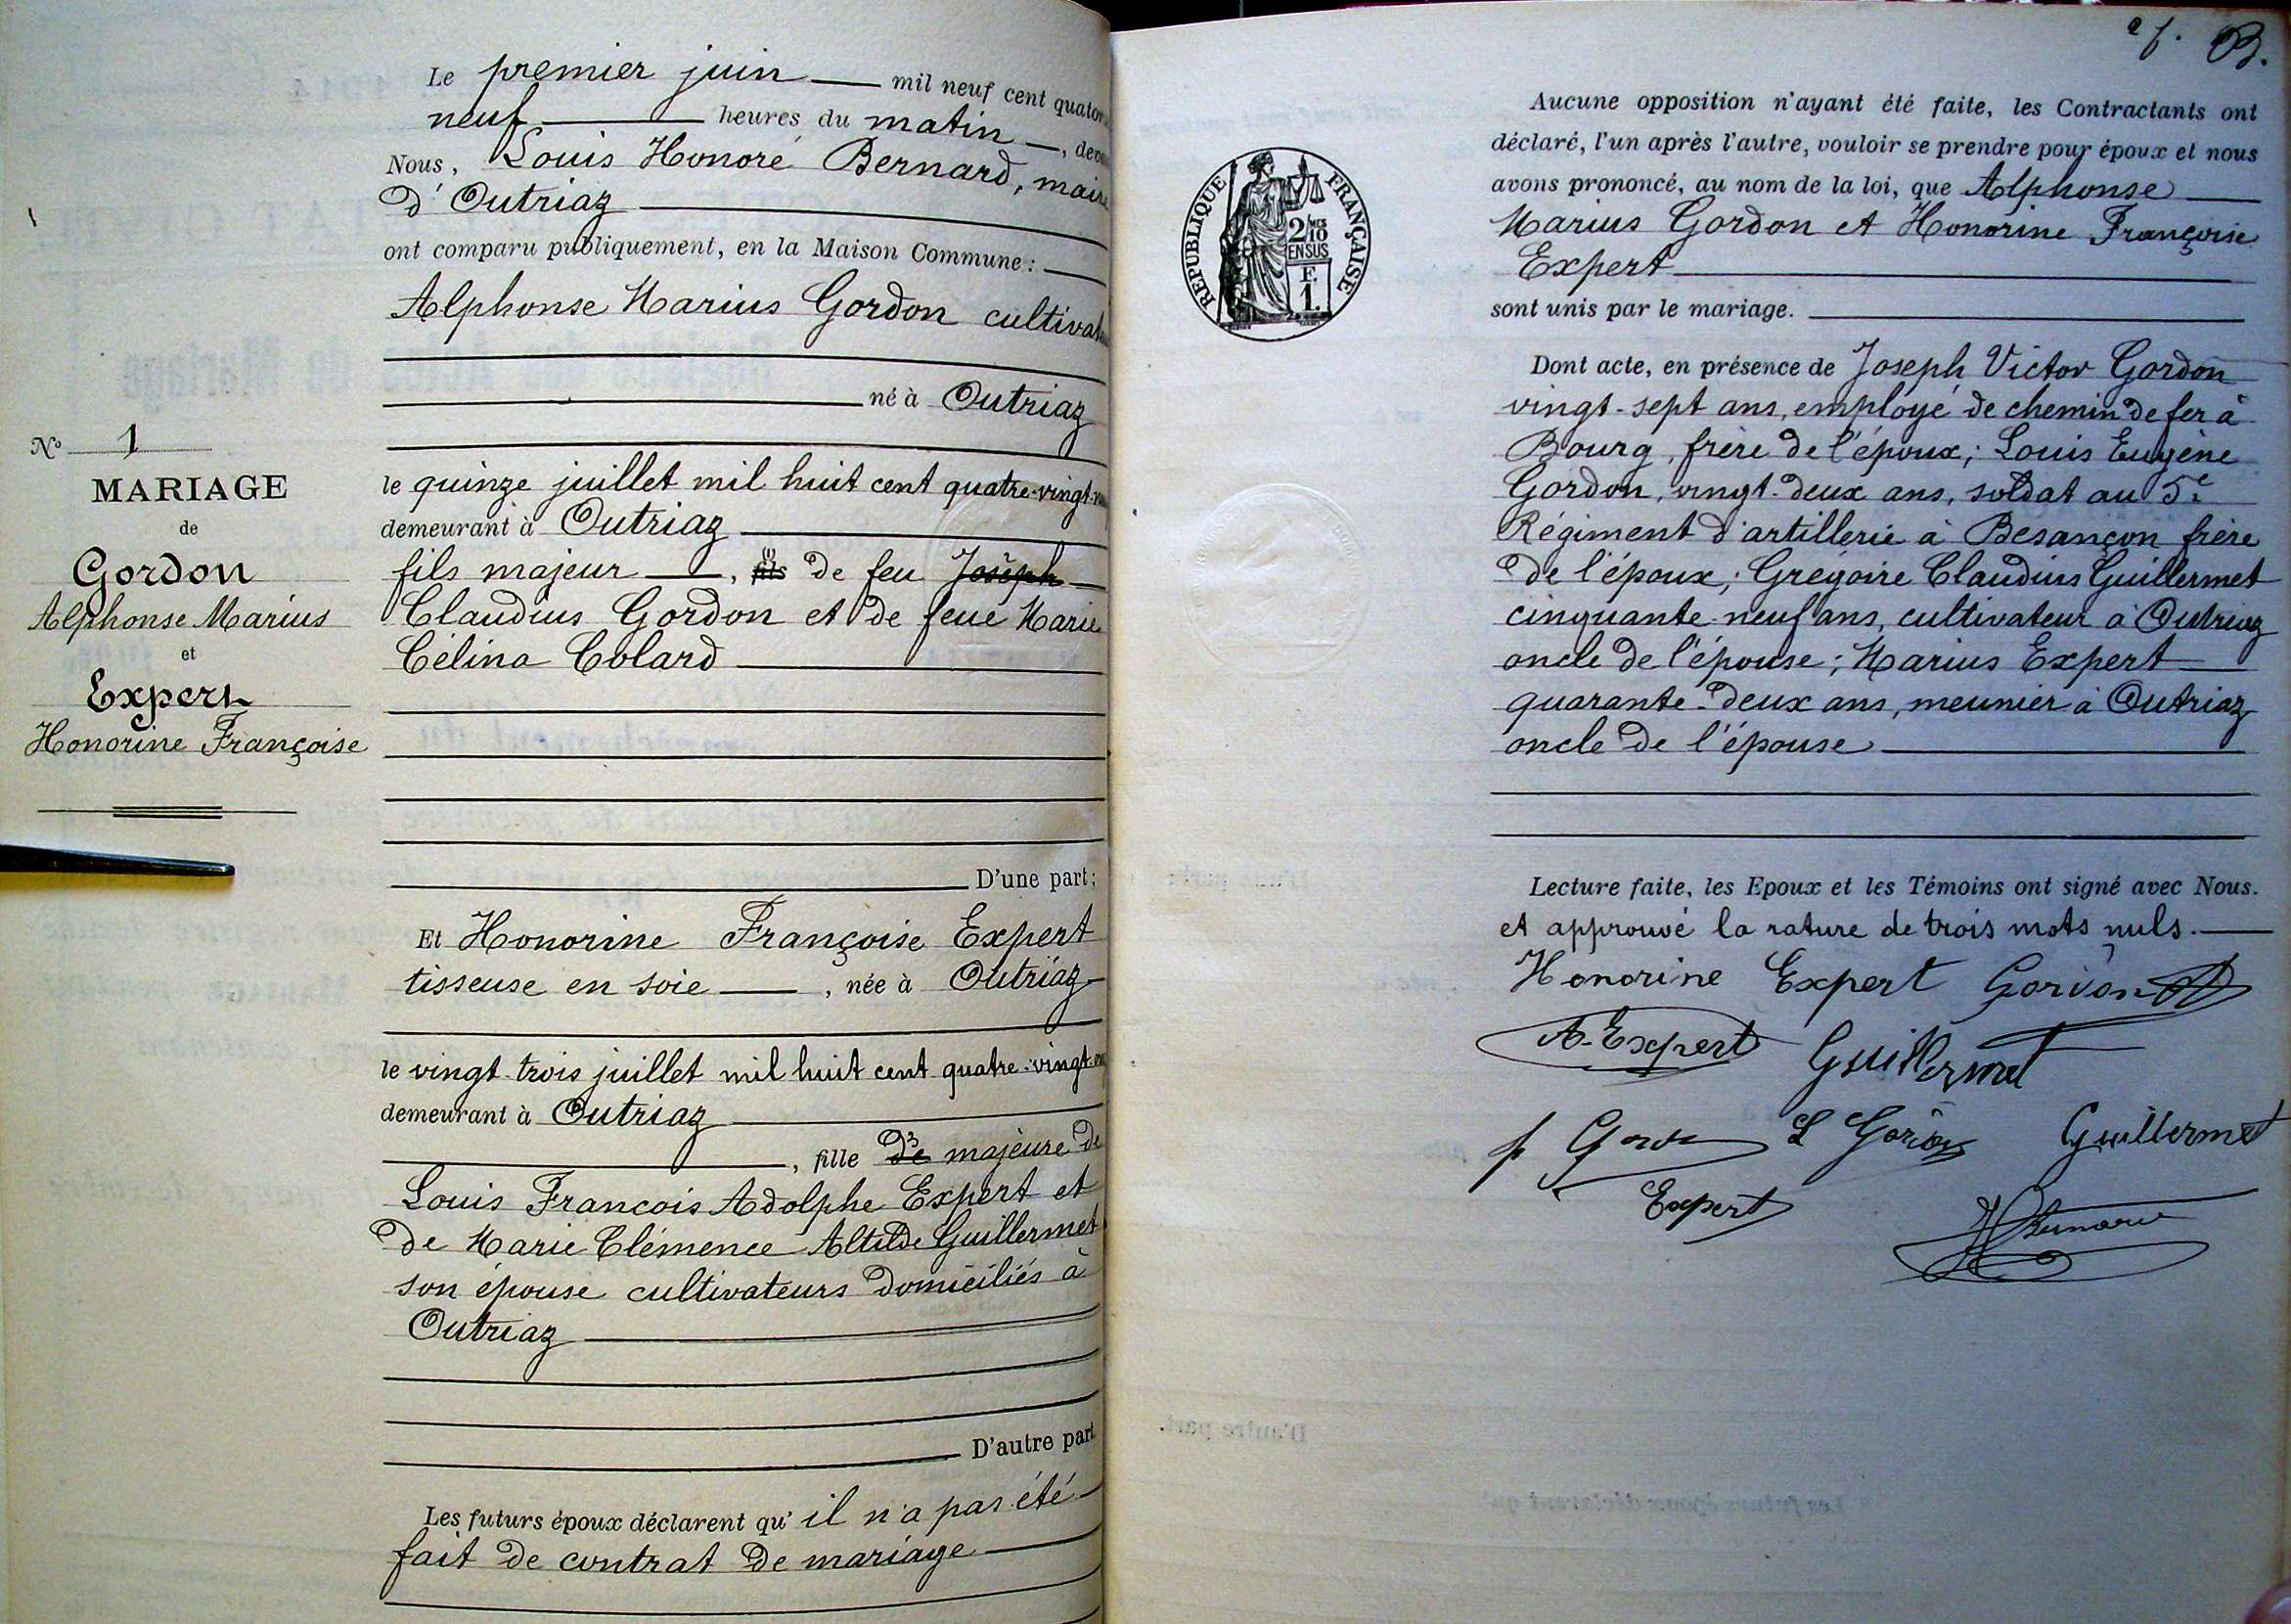 Le premier juin mil neuf cent quator
neuf heures du matin, dev
Nous, Louis Honoré Bernard, maire
d'Outriaz
ont comparu publiquement, en la Maison Commune:
Alphonse Marius Gordon cultivat
né à Outriaz
le quinze juillet mil huit cent quatre-vingt
demeurant à Outriaz
fils majeur, fils de feu Joseph
Claudius Gordon et de feue Marie
Célina Colard
D'une part;
Et Honorine Françoise Expert
tisseuse en soie, née à Outriaz
le vingt-trois juillet mil huit cent quatre-vingt
demeurant à Outriaz
, fille de majeure de
Louis François Adolphe Expert et
de Marie Clémence Altilde Guillermet
son épouse cultivateurs domiciliés à
Outriaz
D'autre part
Les futurs époux déclarent qu'il n'a pas été
fait de contrat de mariage
No 1
MARIAGE
de
Gordon
Alphonse Marius
et
Expert
Honorine Françoise
RÉPUBLIQUE FRANÇAISE
2/10 EN SUS
F.
1.
B.
Aucune opposition n'ayant été faite, les Contractants ont
déclaré, l'un après l'autre, vouloir se prendre pour époux et nous
avons prononcé, au nom de la loi, que Alphonse
Marius Gordon et Honorine Françoise
Expert
sont unis par le mariage.
Dont acte, en présence de Joseph Victor Gordon
vingt-sept ans, employé de chemin de fer à
Bourg, frère de l'époux; Louis Eugène
Gordon, vingt-deux ans, soldat au 5e
Régiment d'artillerie à Besançon frère
de l'époux; Grégoire Claudius Guillermet
cinquante-neuf ans, cultivateur à Outriaz
oncle de l'épouse; Marius Expert
quarante-deux ans, meunier à Outriaz
oncle de l'épouse
Lecture faite, les Epoux et les Témoins ont signé avec Nous.
et approuvé la rature de trois mots nuls.
Honorine Expert Gordon
A. Expert Guillermet
L Gordon Guillermet
Expert